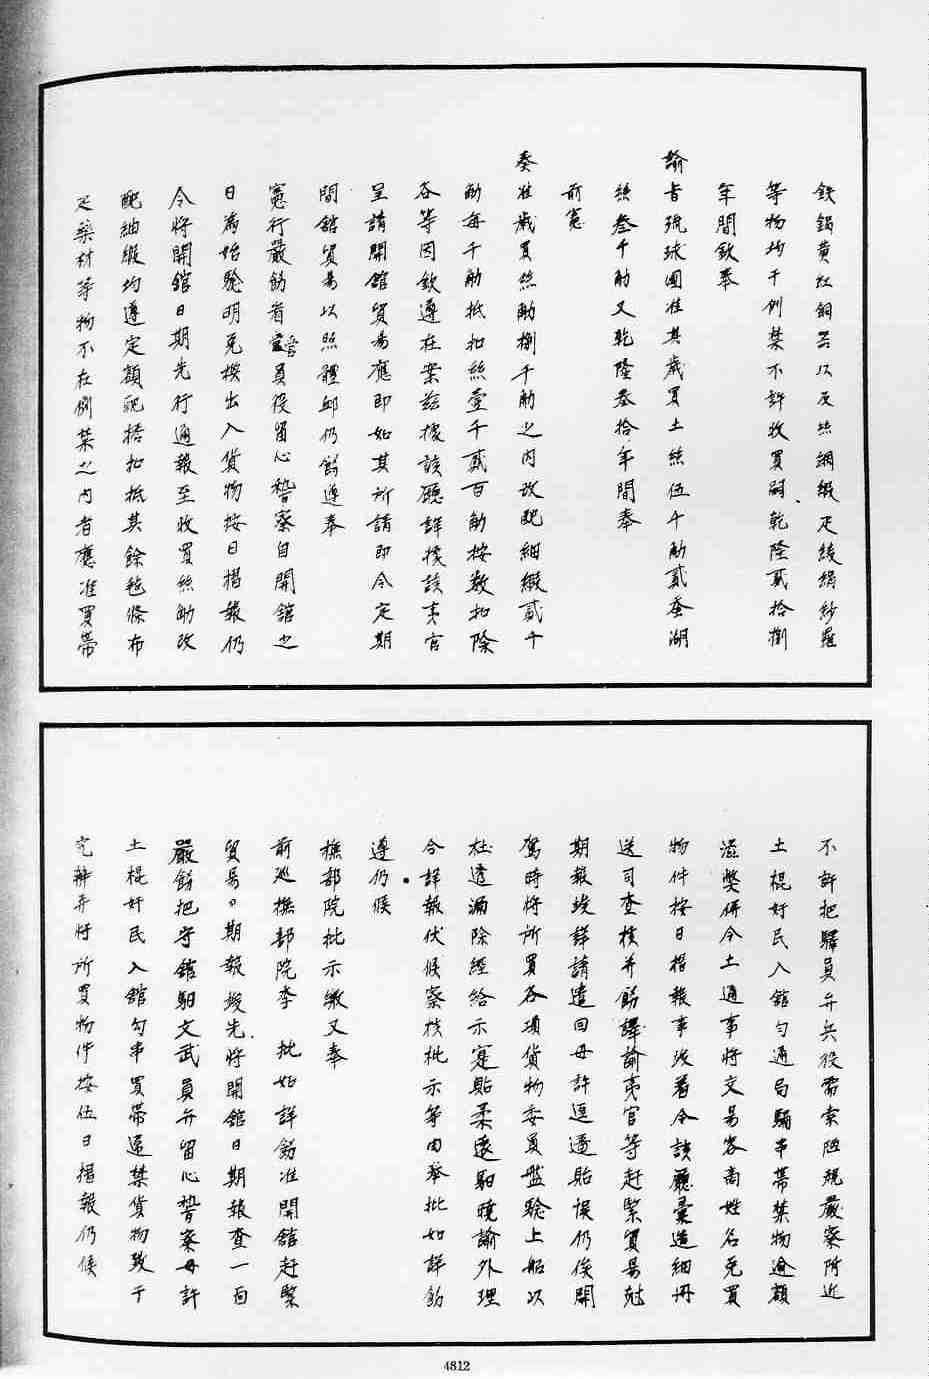 鉄鍋黄紅銅器以及絲綢緞疋綾絹紗羅
等物均干例禁不許收買嗣乾隆貳拾捌
年間欽奉
諭旨琉球國准其歲買土絲伍千觔貳蚕湖
絲叁千觔又乾隆叁拾年間奉
前憲
奏准歲買絲觔捌千觔之内改配綢緞貳千
觔每千觔抵扣絲壹千貳百觔按数扣除
各等因欽遵在案茲據該廳詳據該夷官
呈請開舘貿易應即如其所請即令定期
開舘貿易以照體卹仍餙遵奉
憲行嚴飭看當官員役留心稽察自開舘之
日為始騐明兎挨出入貨物按日揩報仍
令將開舘日期先行通報至收買絲觔改
配紬緞均遵定額配搭扣抵其餘毡條布
疋藥材等物不在例禁之内者應准買帯
不許把驛員弁兵役需索陋規嚴察附近
土棍奸民入舘勾通局騙串帯禁物逾額
滋弊併令土通事將交易客商姓名兎買
物件按日揩報事竣着令該廳彙造細冊
送司查核并餙譯諭夷官等赶緊貿易尅
期報竣詳請遣回毋許逗遛貽悞仍俟開
駕時將所買各項貨物委員盤騐上船以
杜透漏除經給示寔貼柔遠駅曉諭外理
合詳報伏候察核批示等由奉批如詳飭
遵仍候
撫部院批示繳又奉
前巡撫部院李 批如詳餙准開舘赶緊
貿易刻期報竣先將開舘日期報查一面
嚴餙把守舘駅文武員弁留心稽察毋許
土棍奸民入舘勾串買帯違禁貨物致干
究辦并將所買物件按伍日揩報仍候
4812